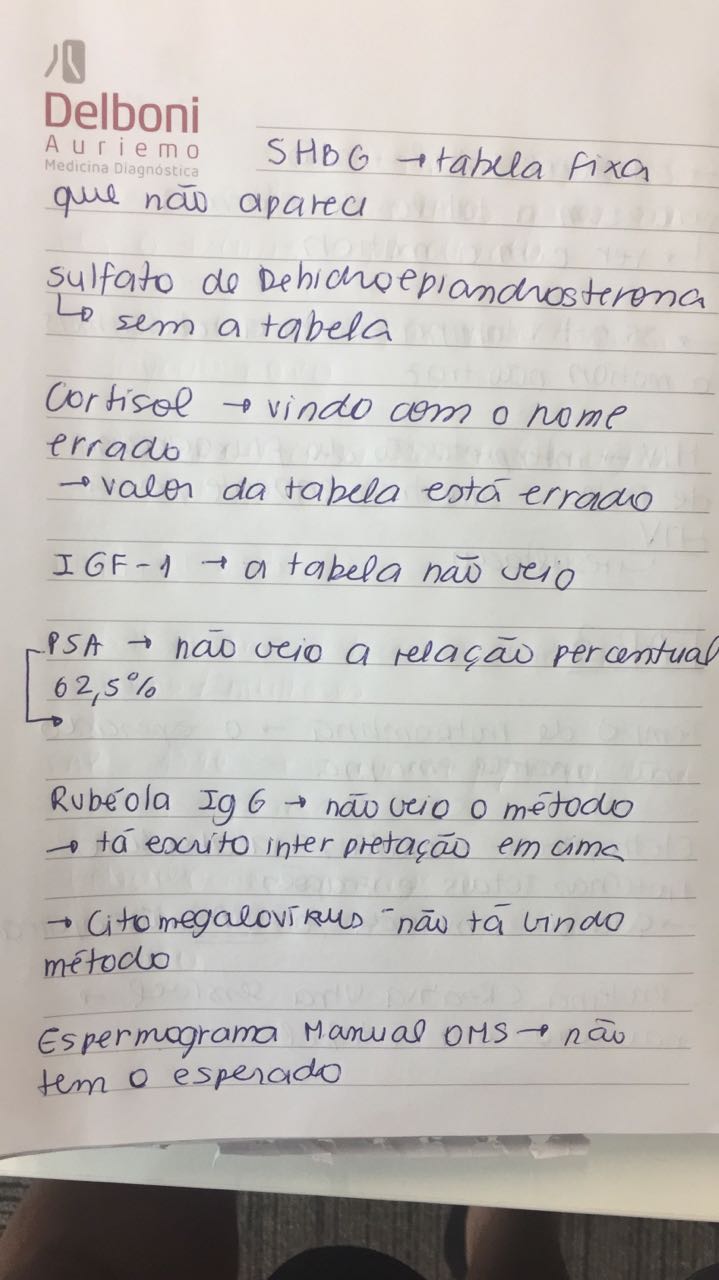 Delboni
Auriemo
Medicina Diagnóstica
SHBG → tabela fixa
que não apareci
Sulfato de Dehidroepiandrosterona
↳ sem a tabela
Cortisol → vindo com o nome
errado
→ valor da tabela está errado
IGF-1 → a tabela não veio
PSA → não veio a relação percentual
62,5%
Rubéola IgG → não veio o método
→ tá escrito interpretação em cima
→ Citomegalovírus - não tá vindo
método
Espermograma Manual OMS → não
tem o esperado